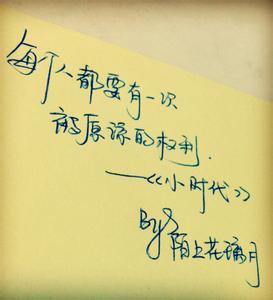 每个人都要有一次
被原谅的权利.
——《小时代》
By
陌上花瑀月